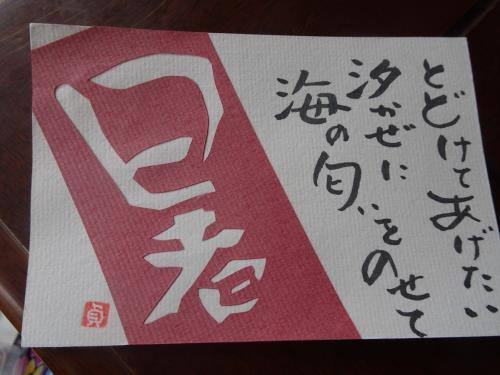 とどけてあげたい
汐かぜに
海の匂いをのせて
暑
貞